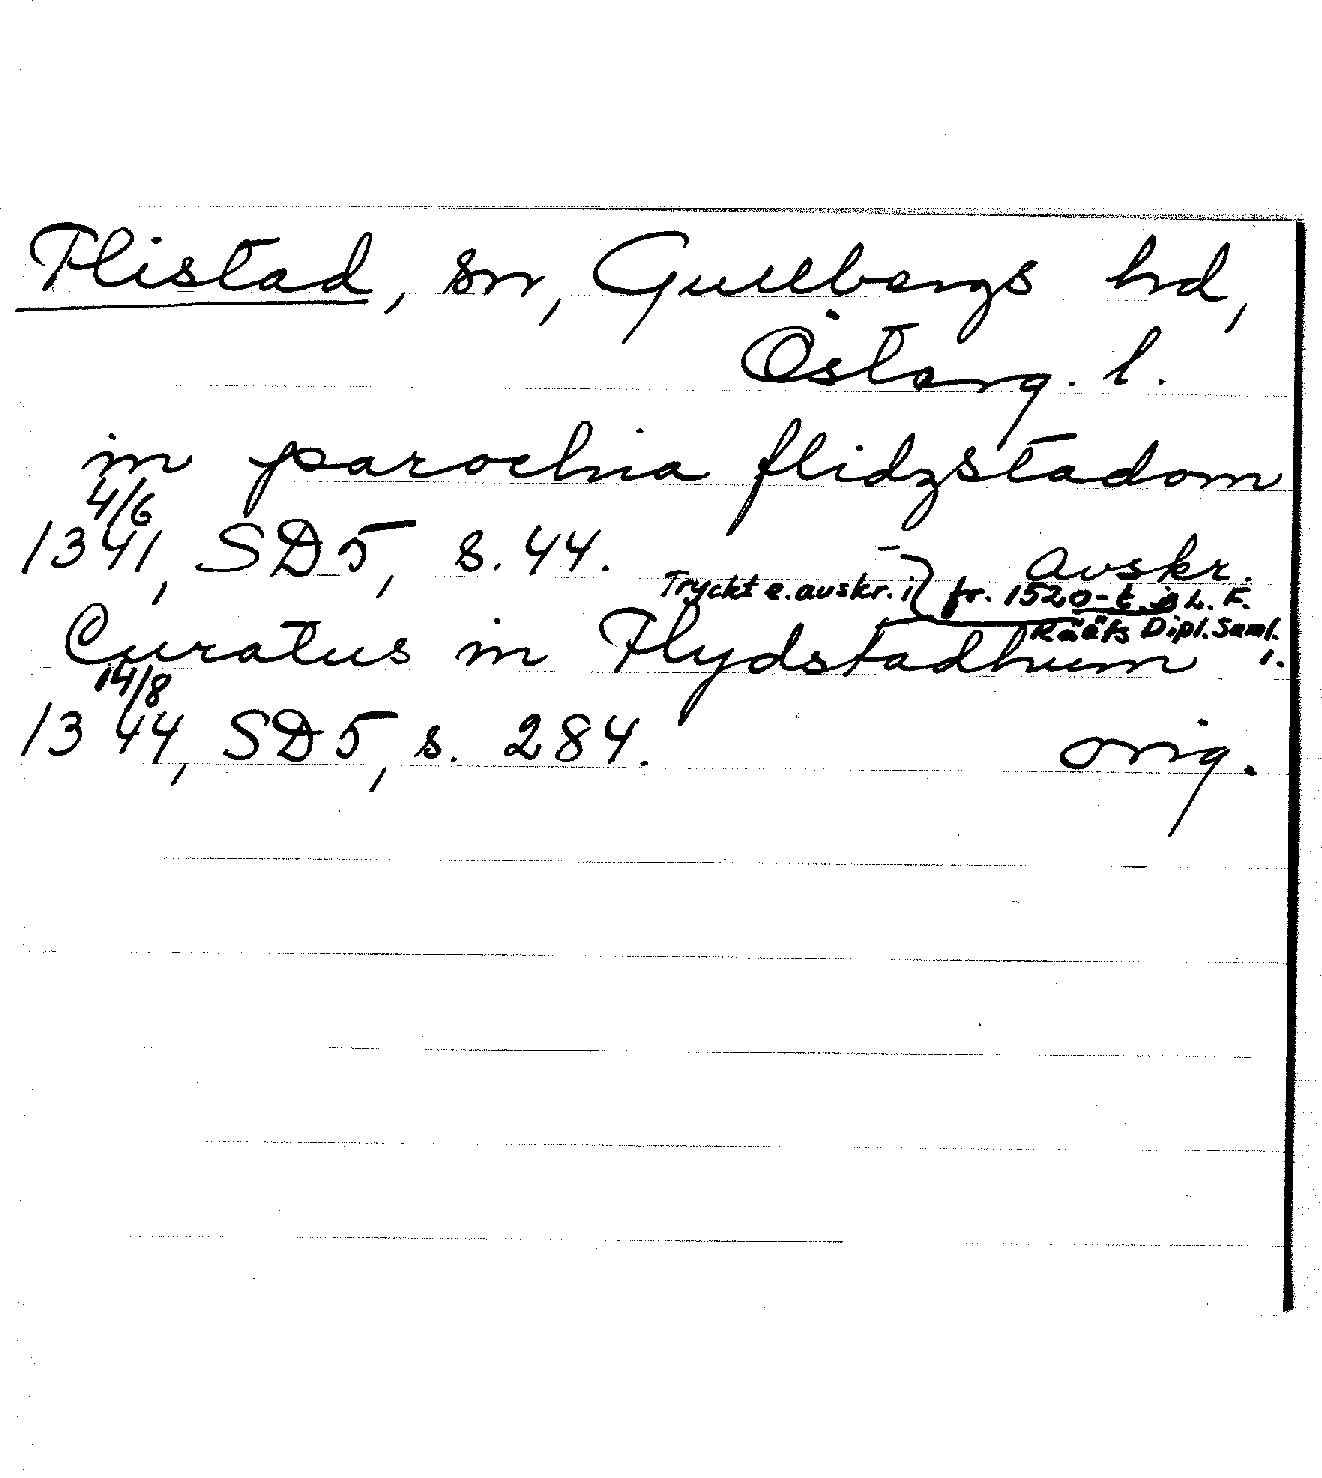 Flistad, sn, Gullbergs hd,
Österg. l.
in parochia flidzstadom
4/6
1341, SD5, s. 44. Avskr.
Tryckt e. avskr. i fr. 1520-t. i L. F.
Rääfs Dipl. Saml. 1.
Curatus in Flydstadhum
14/8
1344, SD5, s. 284. orig.